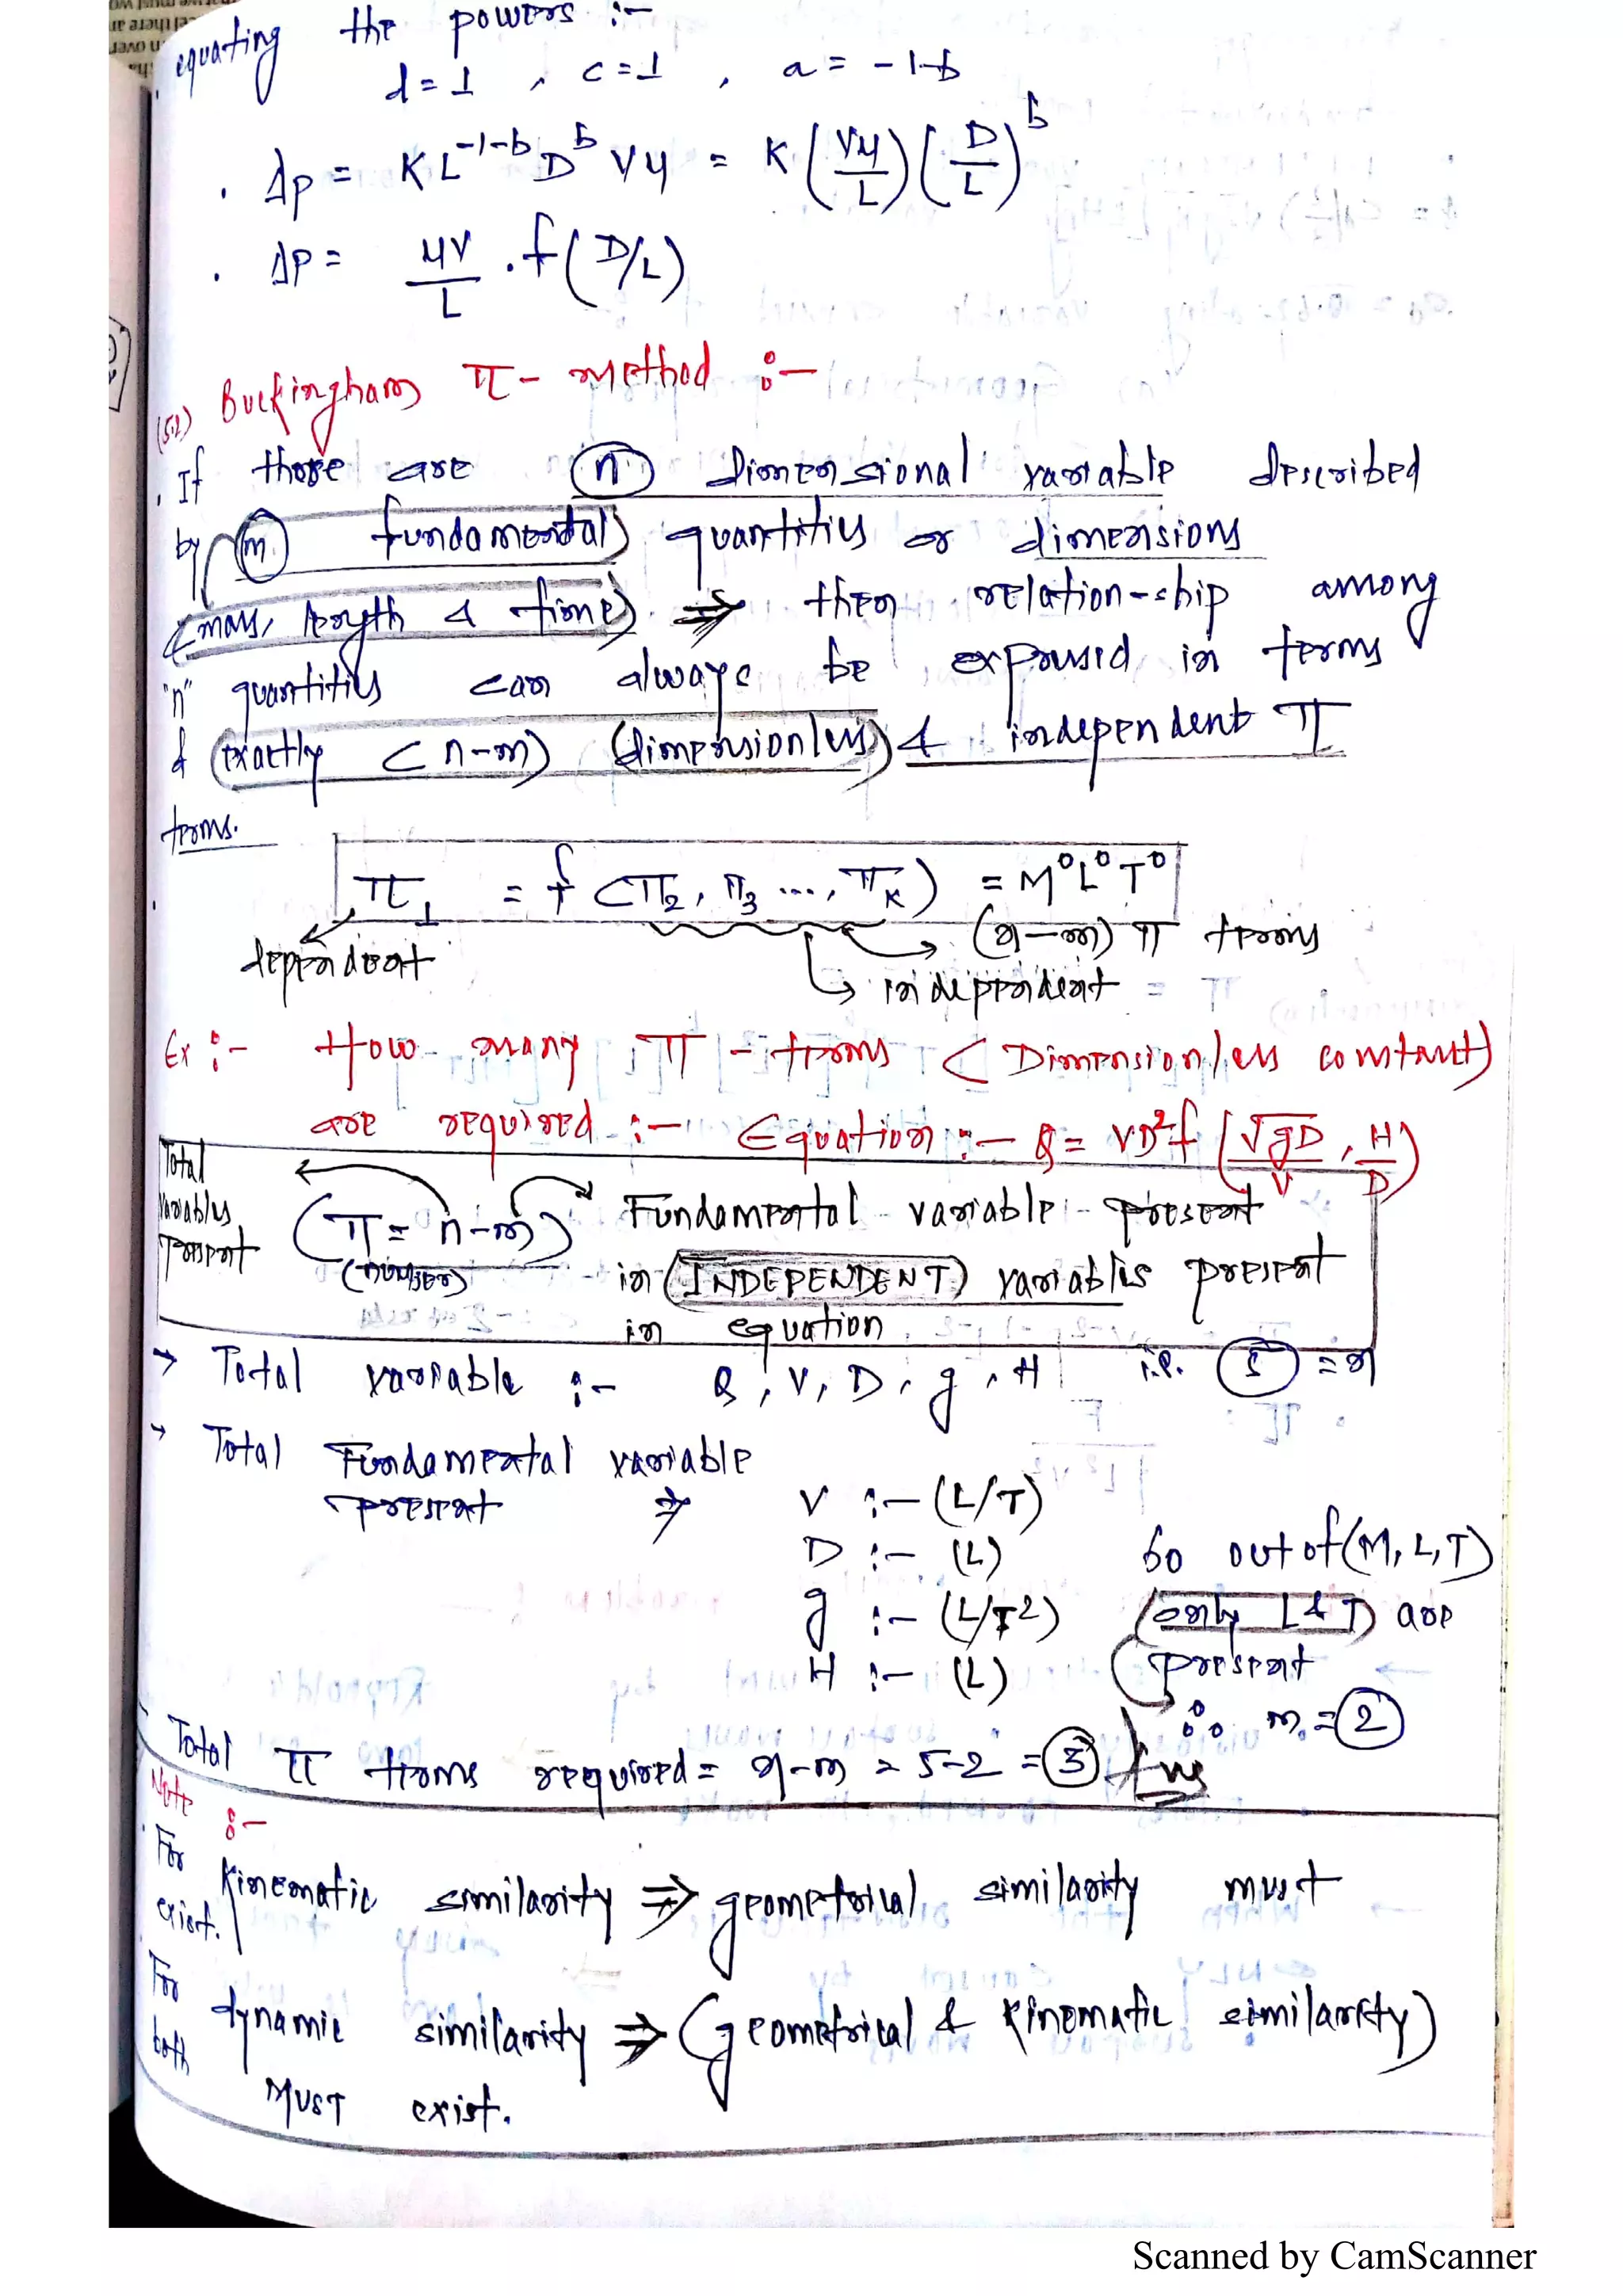 equating the powers :-
d = 1 , c = 1 , a = -1-b
. Δp = K L^{-1-b} D^b V μ = K (Vμ/L) (D/L)^b
. ΔP = μV/L . f(D/L)
(5.2) Buckinghams π - method :-
. If there are (n) Dimensional variable described
by (m) fundamental quantities or dimensions
(mass, length & time) ⇒ then relation-ship among
"n" quantities can always be expressed in terms
of (exactly (n-m) (dimensionless) & independent π
terms.
π1 = f (π2, π3 ...., πK) = M⁰L⁰T⁰
dependent
(n-m) π terms
independent
Ex :- How many π - terms (Dimensionless constant)
are required :- Equation :- Q = VD²f (√gD/V , H/D)
Total variables present
(π = n-m) (number)
Fundamental variable present
in (INDEPENDENT) variables present
in equation
→ Total variable :- Q, V, D, g, H i.e. (5) = n
→ Total Fundamental variable
present ⇒ V :- (L/T)
D :- (L)
g :- (L/T²)
H :- (L)
So out of (M, L, T)
(only L & T) are
present
∴ m = (2)
Total π terms required = n-m = 5-2 = (3) Ans
Note :-
For Kinematic similarity ⇒ geometrical similarity must
exist.
For dynamic similarity ⇒ (geometrical & Kinematic similarity)
both MUST exist.
Scanned by CamScanner